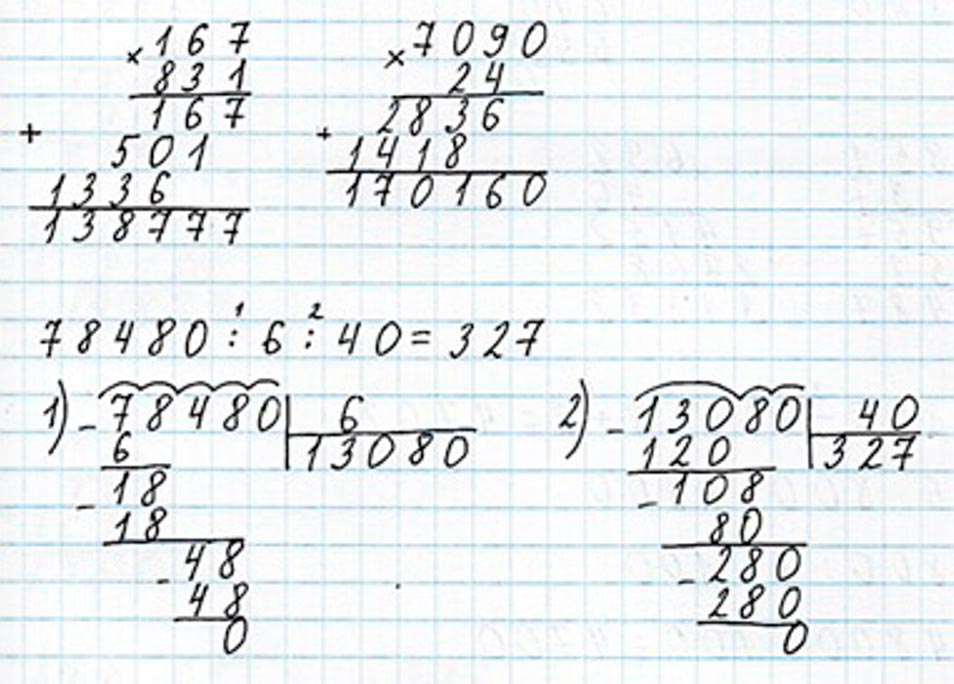 × 167
831
167
+ 501
1336
138777
× 7090
24
2836
+ 1418
170160
1 2
78480 : 6 : 40 = 327
1) - 78480 | 6
6 13080
- 18
18
- 48
48
0
2) - 13080 | 40
120 327
- 108
80
- 280
280
0